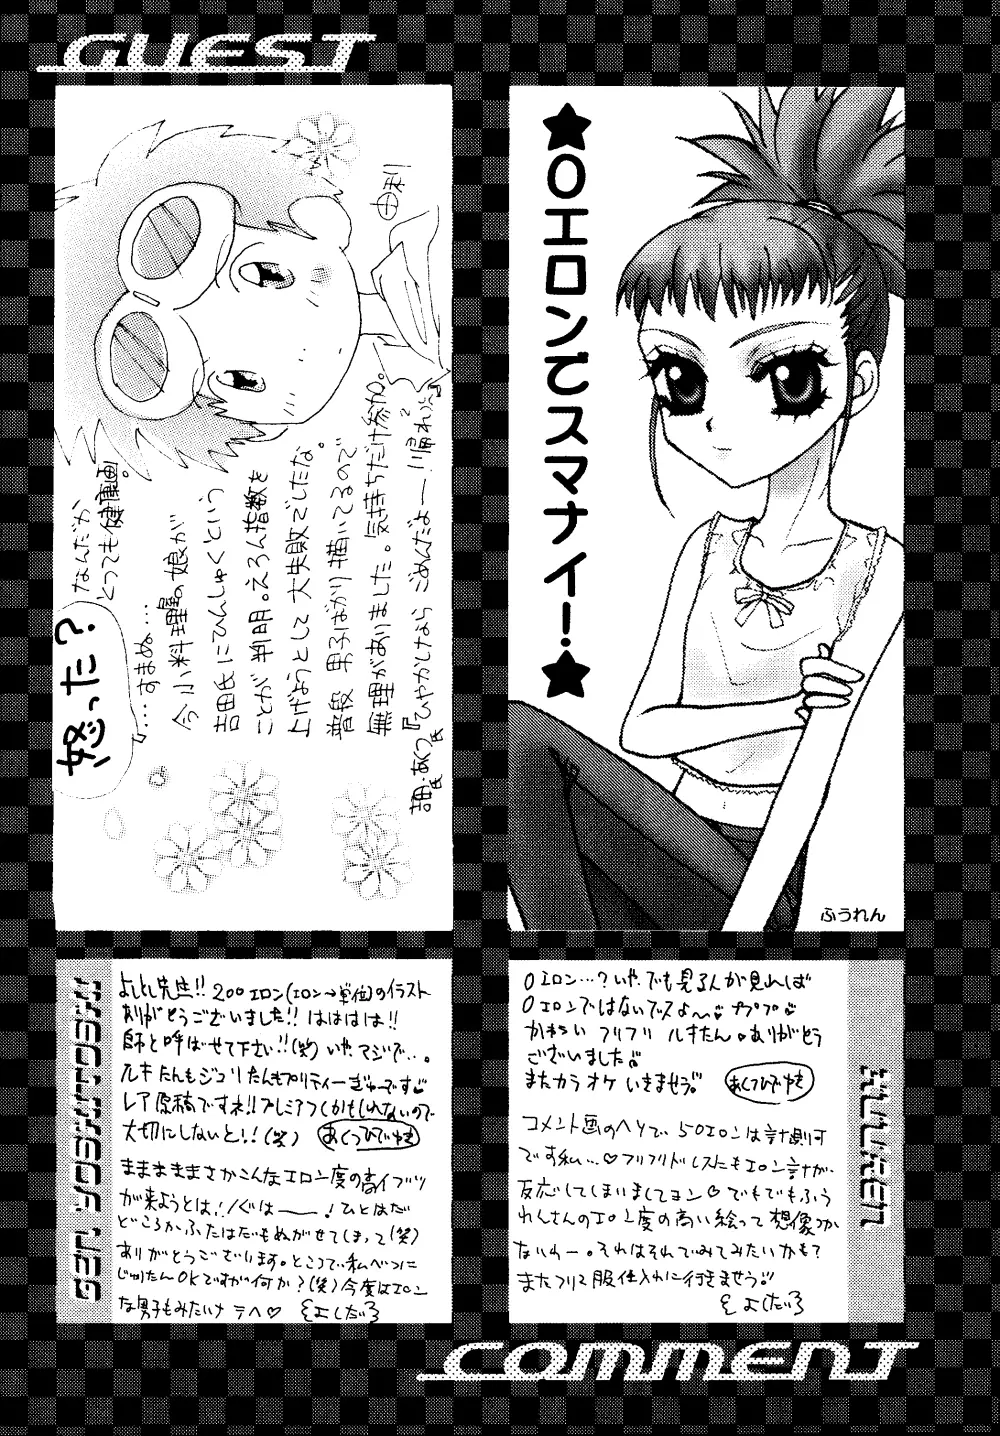 GUEST
★0エロンでスマナイ!★
ふうれん
なんだか
とっても健康画。
怒った?
『…すまぬ…
今、小料理屋の娘が
吉田氏にてんしゅくという
ことが判明。えろん指数を
上げようとして大失敗でしたな。
普段、男子ばかり描いてるので
無理がありました。気持ちだけ参加。
『ひやかしなら ごめんだよー!!帰れ!!』
0エロン…?いや、でも見る人が見れば
0エロンではないでスよ〜 ププププ
かわいい フリフリ ルキたん。ありがとう
ございました
またカラオケ いきませう。 あくつひでゆき
コメント画のヘリで、50エロンは計測可
です私…♡フリフリドレスにもエロン計が
反応してしまいましてヨン♡でもでもふう
れんさんのエロン度の高い絵って想像つか
ないわー。それはそれでみてみたいかも?
またフリフリ服仕入れに行きませう
よしだいろ
FUUREN
よしとし先生!! 200エロン(エロン→単位)のイラスト
ありがとうございました!! はははは!!
師と呼ばせて下さい!!(笑) いや、マジで…。
ルキたんもジュリたんもプリティーぎゃーです
レア原稿ですネ!! プレミアつくかもしれないので
大切にしないと!!(笑) あくつひでゆき
まままままさかこんなエロン度の高イブツ
が来ようとは!ノぐはーー!ひとはだ
どころかふたはだもぬがせてしまって(笑)
ありがとうございます。ところで私べつに
じゅりたんOKですが何か?(笑)今度はエロン
な男子もみたいナ テヘ♡ よしだいろ
GEN YOSHITOSHI
COMMENT